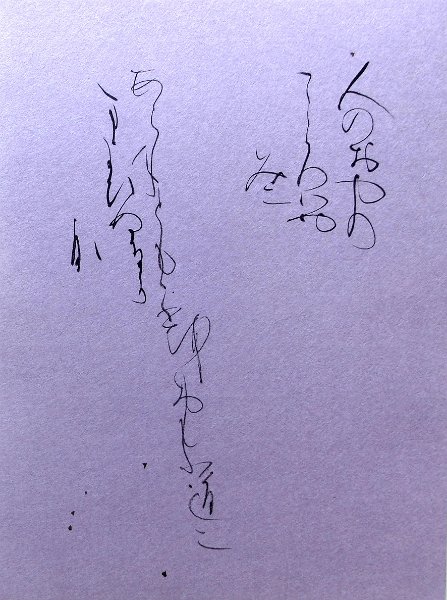 人のおやの
こころハや
みに
あらねとも子をおもふ道に
まとひぬる
かな